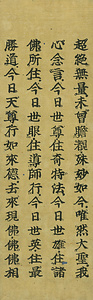 超絕無量未曾瞻覩殊妙如今唯然大聖我
心念言今日世尊住奇特法今日世雄住諸
佛所住今日世眼住導師行今日世英住最
勝道今日天尊行如來德去來現佛佛佛相